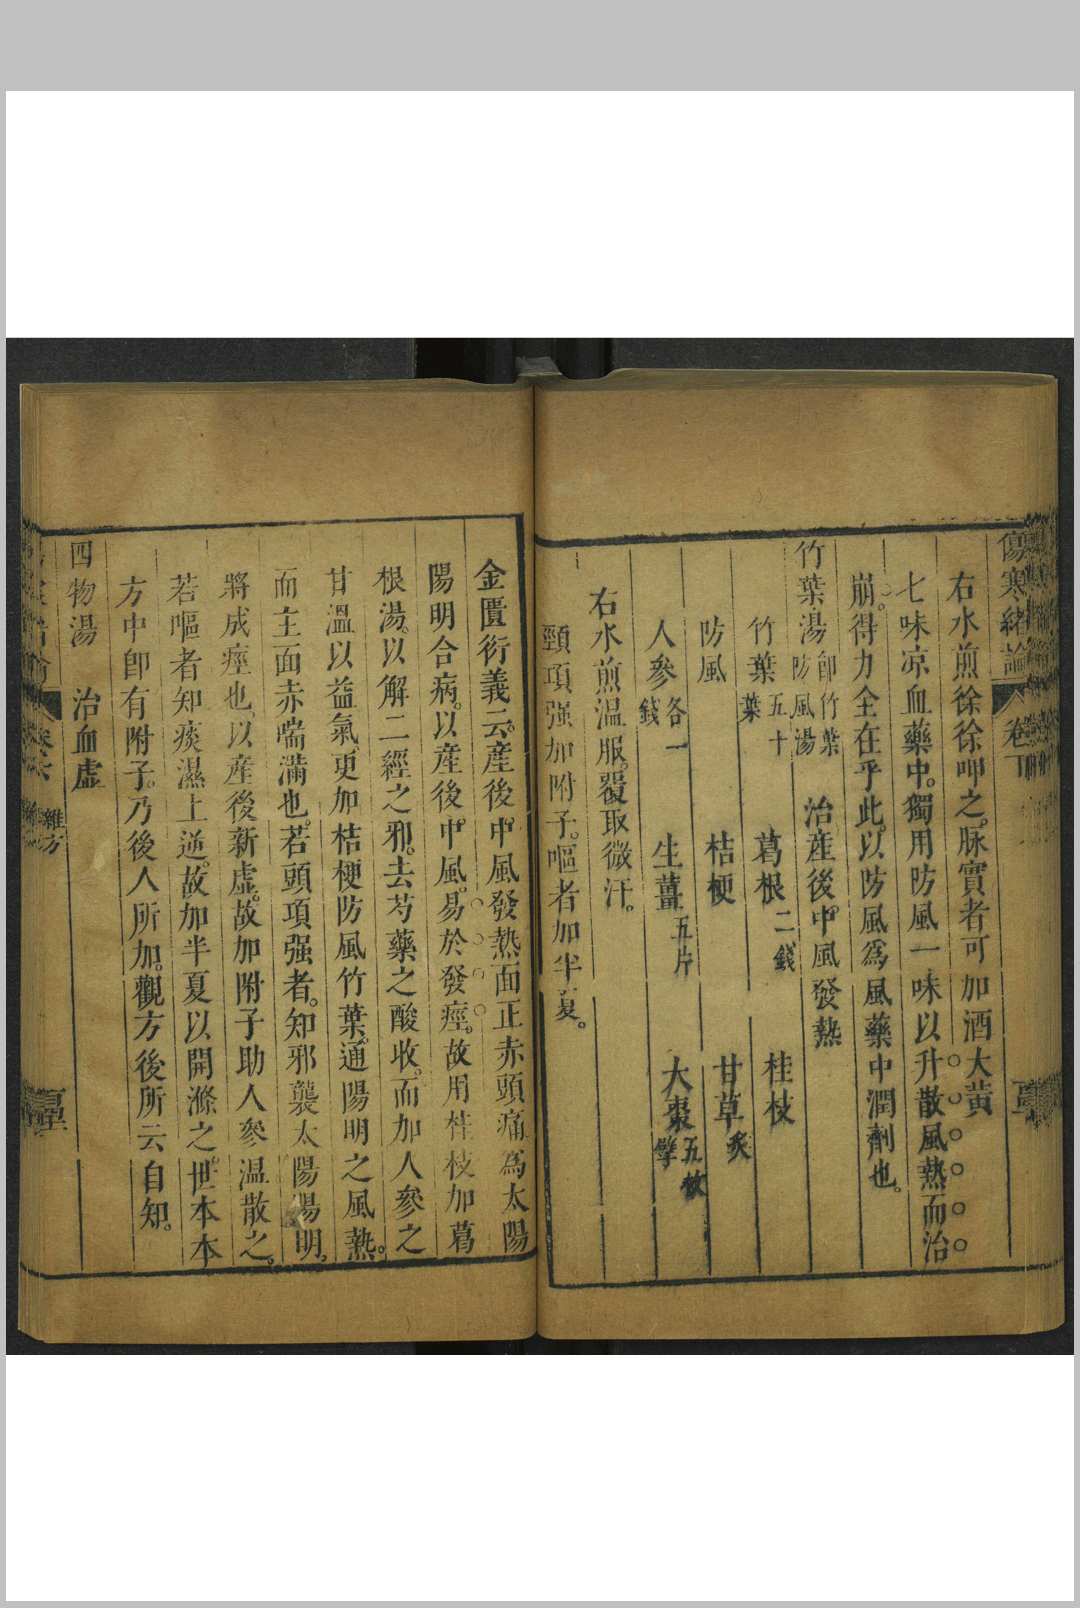 傷寒緒論 卷下
右水煎徐徐呷之。脉實者可加酒大黃
七味凉血藥中。獨用防風一味以升散風熱而治
崩。得力全在乎此。以防風爲風藥中潤劑也。
竹葉湯 卽竹葉防風湯 治産後中風發熱
竹葉 五十葉 葛根 二錢 桂枝
防風 桔梗 甘草 炙
人參 各一錢 生薑 五片 大棗 五枚擘
右水煎温服。覆取微汗。
頸項强加附子。嘔者加半夏。
金匱衍義云。産後中風發熱面正赤頭痛爲太陽
陽明合病。以産後中風。易於發痙。故用桂枝加葛
根湯。以解二經之邪。去芍藥之酸收。而加人參之
甘溫以益氣更加桔梗防風竹葉。通陽明之風熱。
而主面赤喘滿也。若頭項强者。知邪襲太陽陽明。
將成痙也。以産後新虛。故加附子助人參溫散之。
若嘔者知痰濕上逆。故加半夏以開滌之。世本本
方中卽有附子。乃後人所加。觀方後所云自知。
四物湯 治血虛
雜方